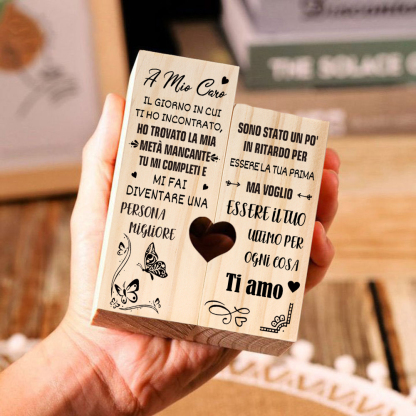 A Mio Caro
IL GIORNO IN CUI
TI HO INCONTRATO,
HO TROVATO LA MIA
METÀ MANCANTE
TU MI COMPLETI E
MI FAI
DIVENTARE UNA
PERSONA
MIGLIORE
SONO STATO UN PO'
IN RITARDO PER
ESSERE LA TUA PRIMA
MA VOGLIO
ESSERE IL TUO
ULTIMO PER
OGNI COSA
Ti amo
THE SOLACE O